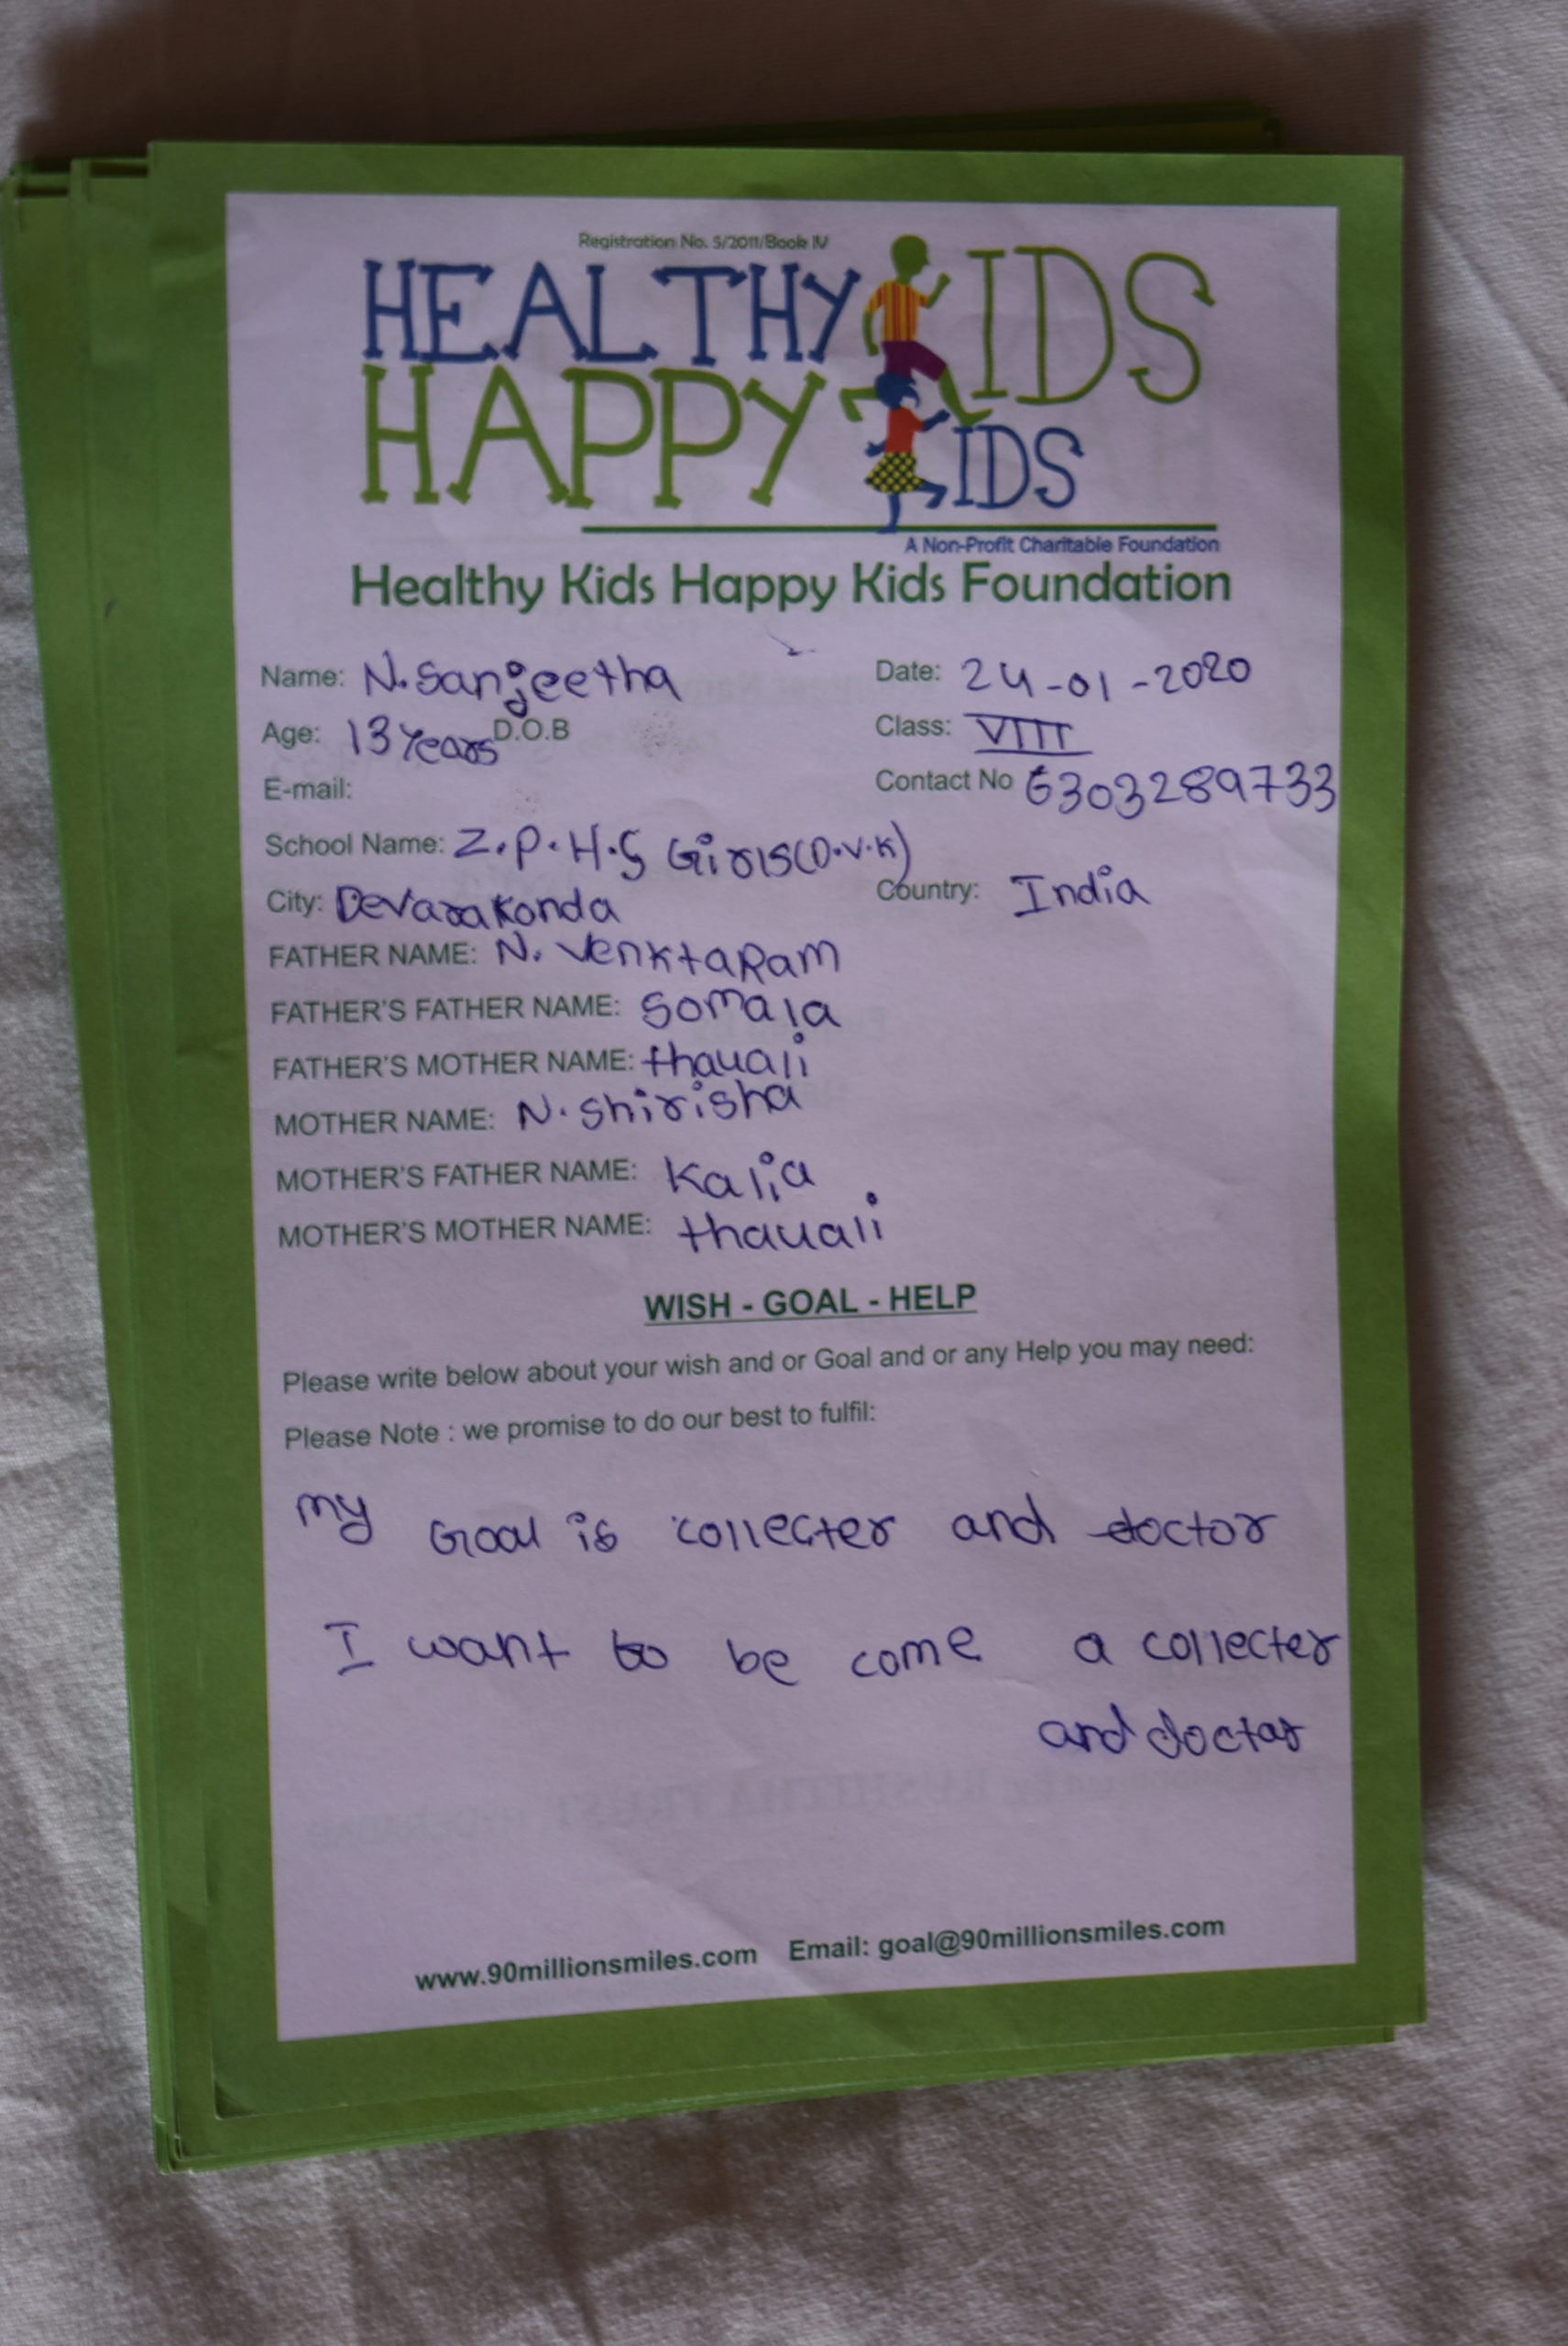 Registration No. 5/2011/Book IV
HEALTHY KIDS
HAPPY KIDS
A Non-Profit Charitable Foundation
Healthy Kids Happy Kids Foundation
Name: N. Sanjeetha Date: 24-01-2020
Age: 13 Years D.O.B Class: VIII
E-mail: Contact No 6303289733
School Name: Z.P.H.S Girls (D.V.K)
City: Devarakonda Country: India
FATHER NAME: N. VenktaRam
FATHER'S FATHER NAME: Somala
FATHER'S MOTHER NAME: thauali
MOTHER NAME: N. Shirisha
MOTHER'S FATHER NAME: Kalia
MOTHER'S MOTHER NAME: thauali
WISH - GOAL - HELP
Please write below about your wish and or Goal and or any Help you may need:
Please Note : we promise to do our best to fulfil:
my Goal is collecter and doctor
I want to be come a collecter
and doctar
www.90millionsmiles.com Email: goal@90millionsmiles.com